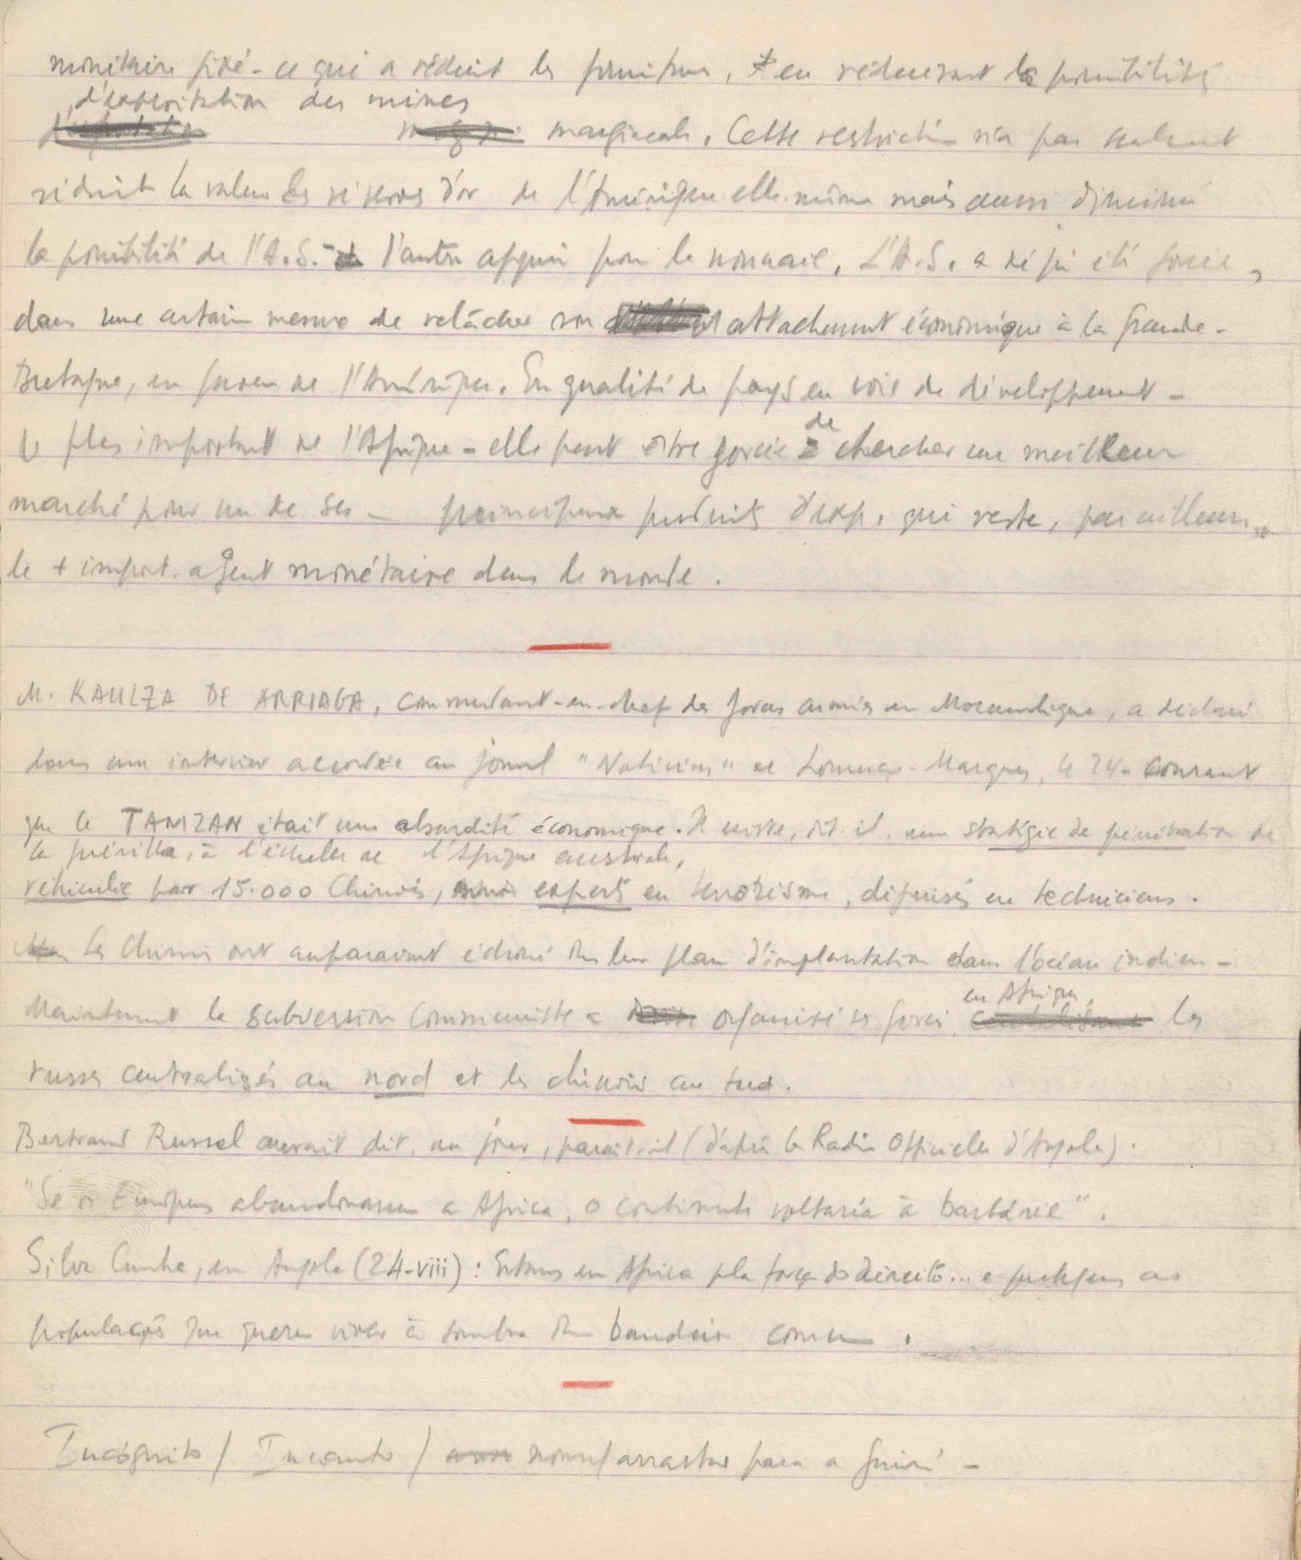 monétaire fixé - ce qui a réduit les fournitures, en réduisant la possibilité
d'exploitation des mines
marginales. Cette restriction n'a pas seulement
réduit la valeur des réserves d'or de l'Amérique elle-même mais aussi diminué
la possibilité de l'A.S. l'autre appui pour la monnaie. L'A.S. a déjà été forcée,
dans une certaine mesure de relâcher son attachement économique à la Grande-
Bretagne, en faveur de l'Amérique. En qualité de pays en voie de développement -
le plus important de l'Afrique - elle peut être forcée de chercher un meilleur
marché pour un de ses - principaux produits d'exp. qui reste, par ailleurs,
le + import. agent monétaire dans le monde.
M. KAULZA DE ARRIAGA, commandant-en-chef des forces armées en Mozambique, a déclaré
dans une interview accordée au journal "Noticias" de Lourenço-Marques, le 24 courant
que le TANZAN était une absurdité économique. Il existe, dit-il, une stratégie de pénétration de
la guérilla, à l'échelle de l'Afrique australe,
véhiculée par 15.000 Chinois, experts en terrorisme, déguisés en techniciens.
Les Chinois ont auparavant échoué dans leur plan d'implantation dans l'océan indien -
Maintenant la subversion communiste a organisé ses forces en Afrique, les
russes centralisés au nord et les chinois au sud.
Bertrand Russel aurait dit, un jour, paraît-il (d'après la Radio Officielle d'Angola).
"Se os Europeus abandonarem a Africa, o continente voltaria à barbárie".
Silva Cunha, en Angola (24-viii): Estamos em Africa pla força do direito... e protegemos as
populações que querem viver à sombra da bandeira comum.
Incógnito / Incanto / arrastar para a Guiné -